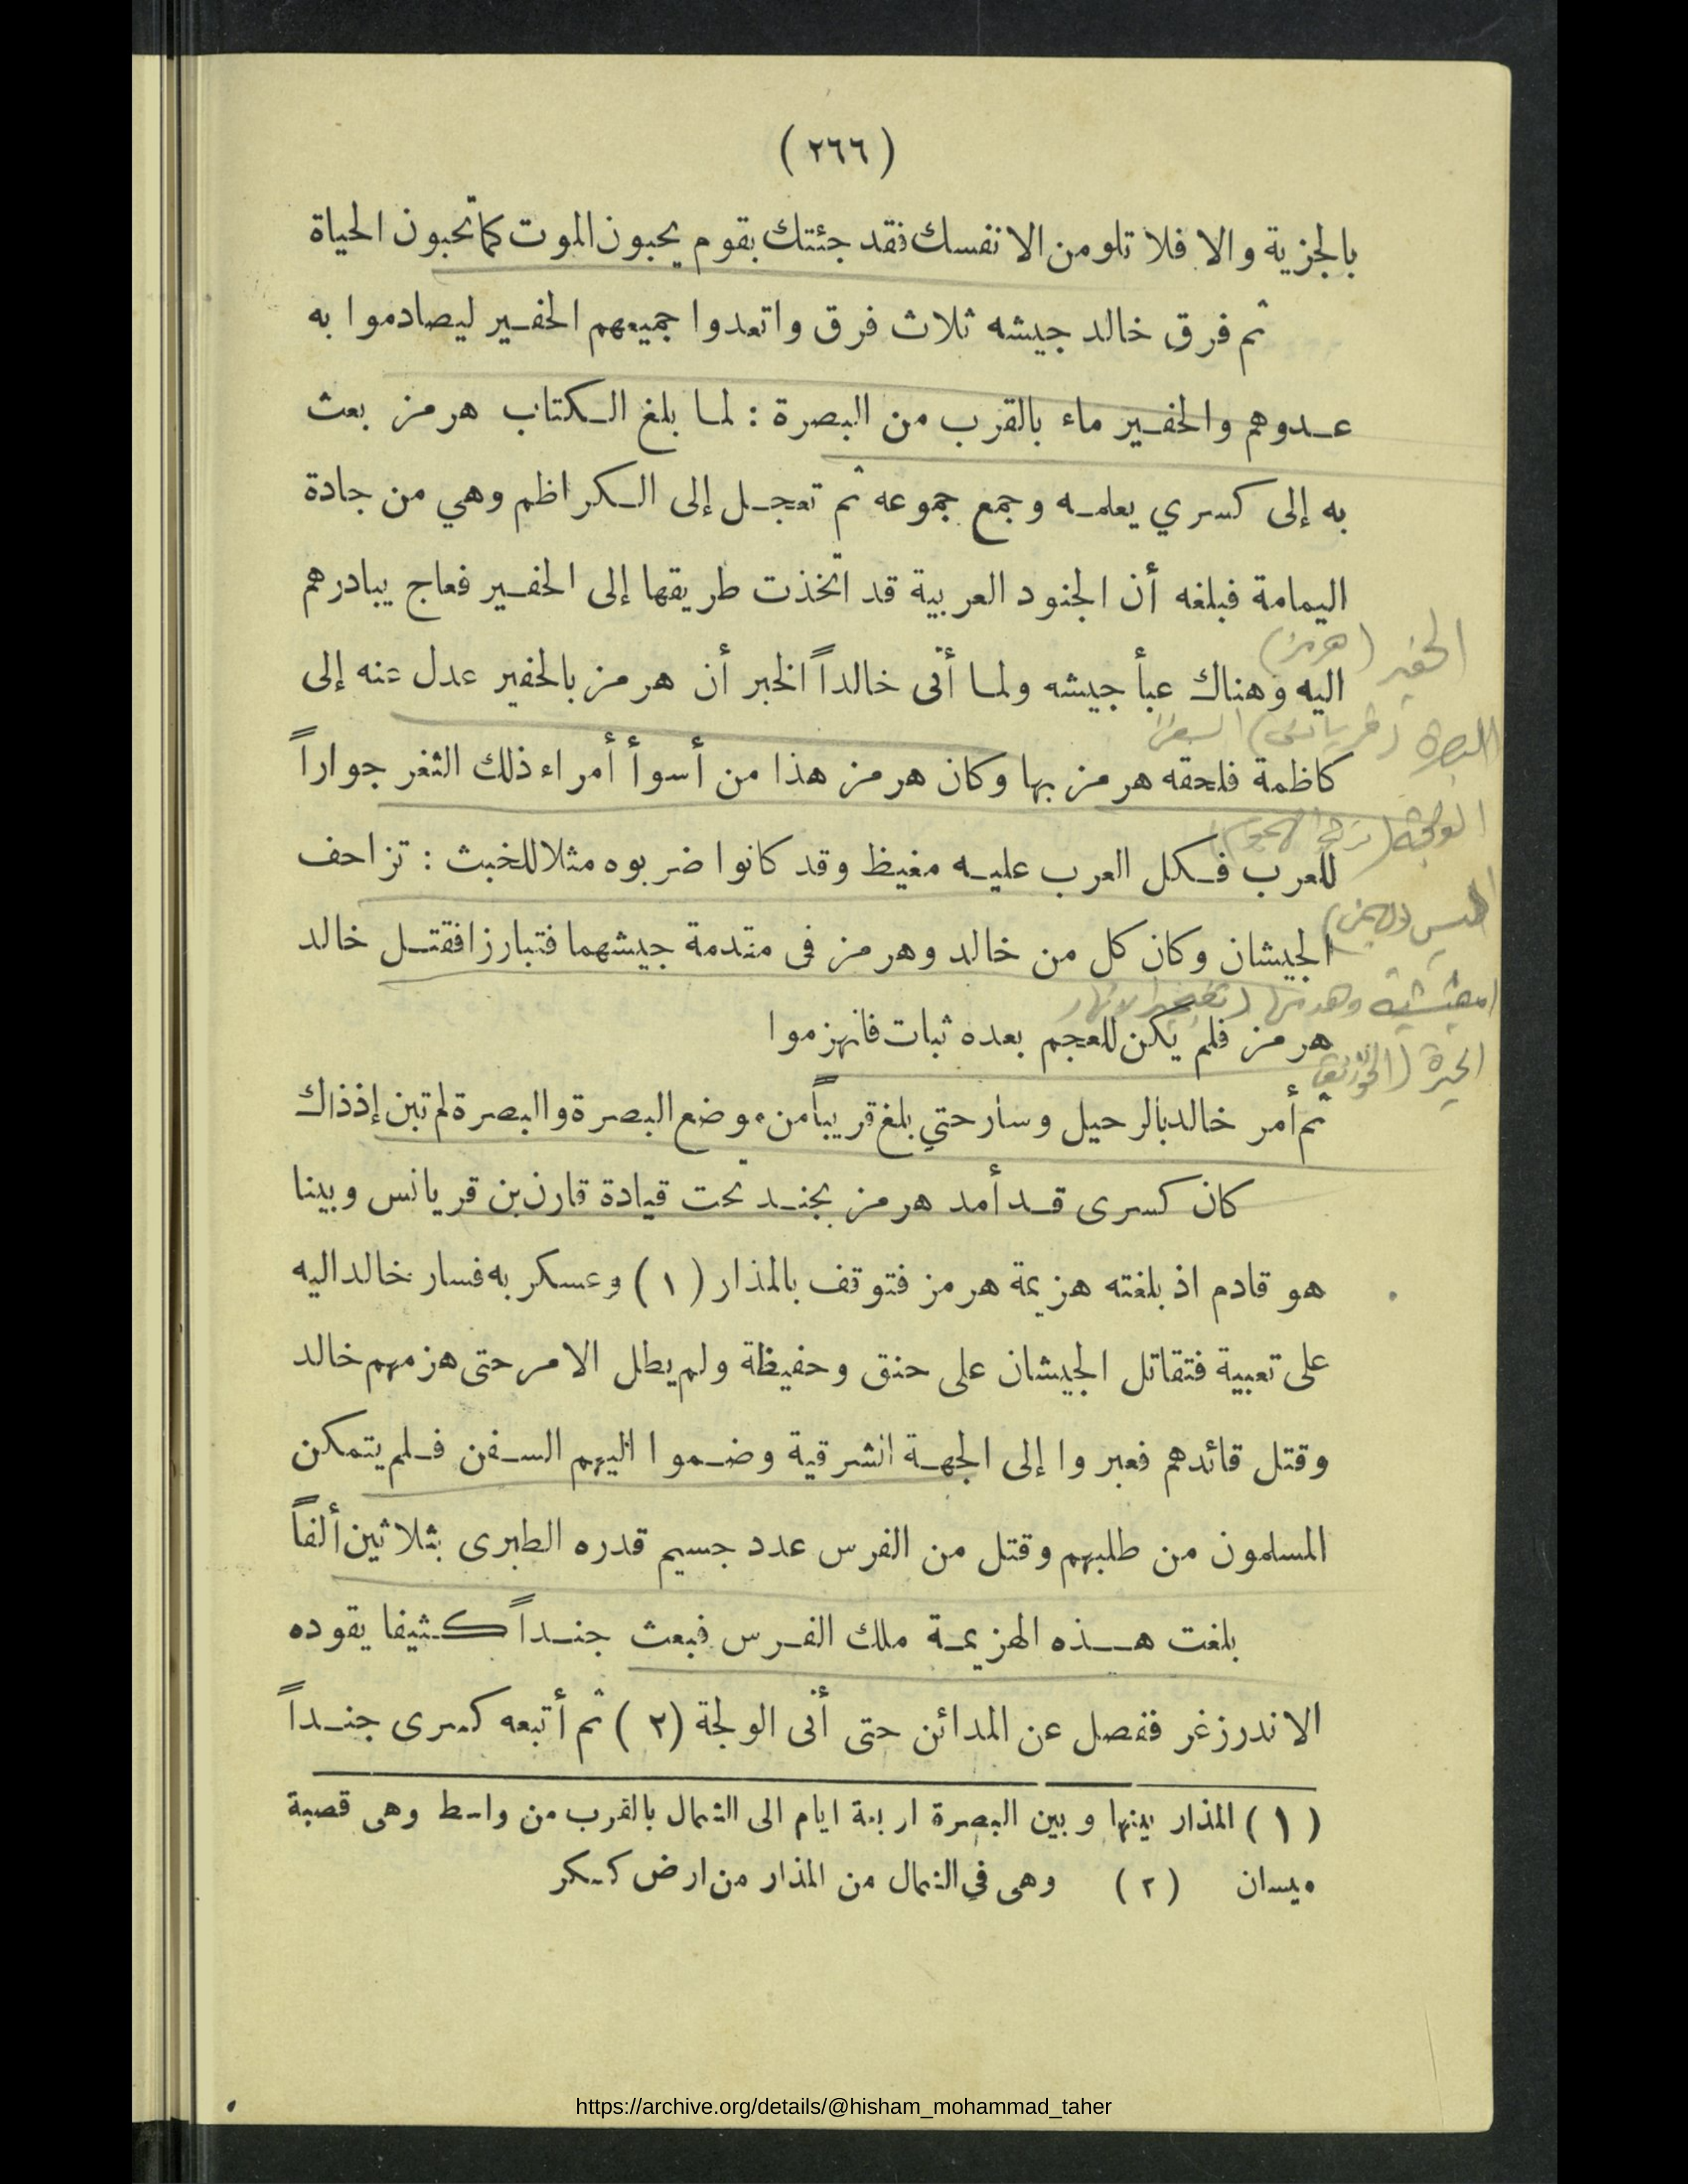 ( ٢٦٦ )
بالجزية والا فلا تلومن الا نفسك فقد جئتك بقوم يحبون الموت كما تحبون الحياة
ثم فرق خالد جيشه ثلاث فرق واتعدوا جميعهم الحفير ليصادموا به
عدوهم والحفير ماء بالقرب من البصرة : لما بلغ الكتاب هرمز بعث
به إلى كسري يعلمه وجمع جموعه ثم تعجل إلى الكراظم وهي من جادة
اليمامة فبلغه أن الجنود العربية قد اتخذت طريقها إلى الحفير فعاج يبادرهم
الحفير (هرمز)
اليه وهناك عبأ جيشه ولما أتى خالداً الخبر أن هرمز بالحفير عدل عنه إلى
البصرة
كاظمة فلحقه هرمز بها وكان هرمز هذا من أسوأ أمراء ذلك الثغر جواراً
الولجة
للعرب فكل العرب عليه مغيظ وقد كانوا ضربوه مثلا للخبث : تزاحف
الجيشان وكان كل من خالد وهرمز فى مقدمة جيشهما فتبارزا فقتل خالد
امغيشية وهدمها
هرمز فلم يكن للعجم بعده ثبات فانهزموا
الحيرة (الخورنق
ثم أمر خالد بالرحيل وسار حتي بلغ قريباً من موضع البصرة والبصرة لم تبن إذ ذاك
كان كسرى قد أمد هرمز بجند تحت قيادة قارن بن قريانس وبينا
هو قادم اذ بلغته هزيمة هرمز فتوقف بالمذار ( ١ ) وعسكر به فسار خالد اليه
على تعبية فتقاتل الجيشان على حنق وحفيظة ولم يطل الامر حتى هزمهم خالد
وقتل قائدهم فعبروا إلى الجهة الشرقية وضموا اليهم السفن فلم يتمكن
المسلمون من طلبهم وقتل من الفرس عدد جسيم قدره الطبرى بثلاثين ألفاً
بلغت هذه الهزيمة ملك الفرس فبعث جنداً كثيفا يقوده
الاندرزغر ففصل عن المدائن حتى أتى الولجة ( ٢ ) ثم أتبعه كسرى جنداً
( ١ ) المذار بينها وبين البصرة اربعة ايام الى الشمال بالقرب من واسط وهى قصبة
ميسان ( ٢ ) وهى في الشمال من المذار من ارض كسكر
https://archive.org/details/@hisham_mohammad_taher